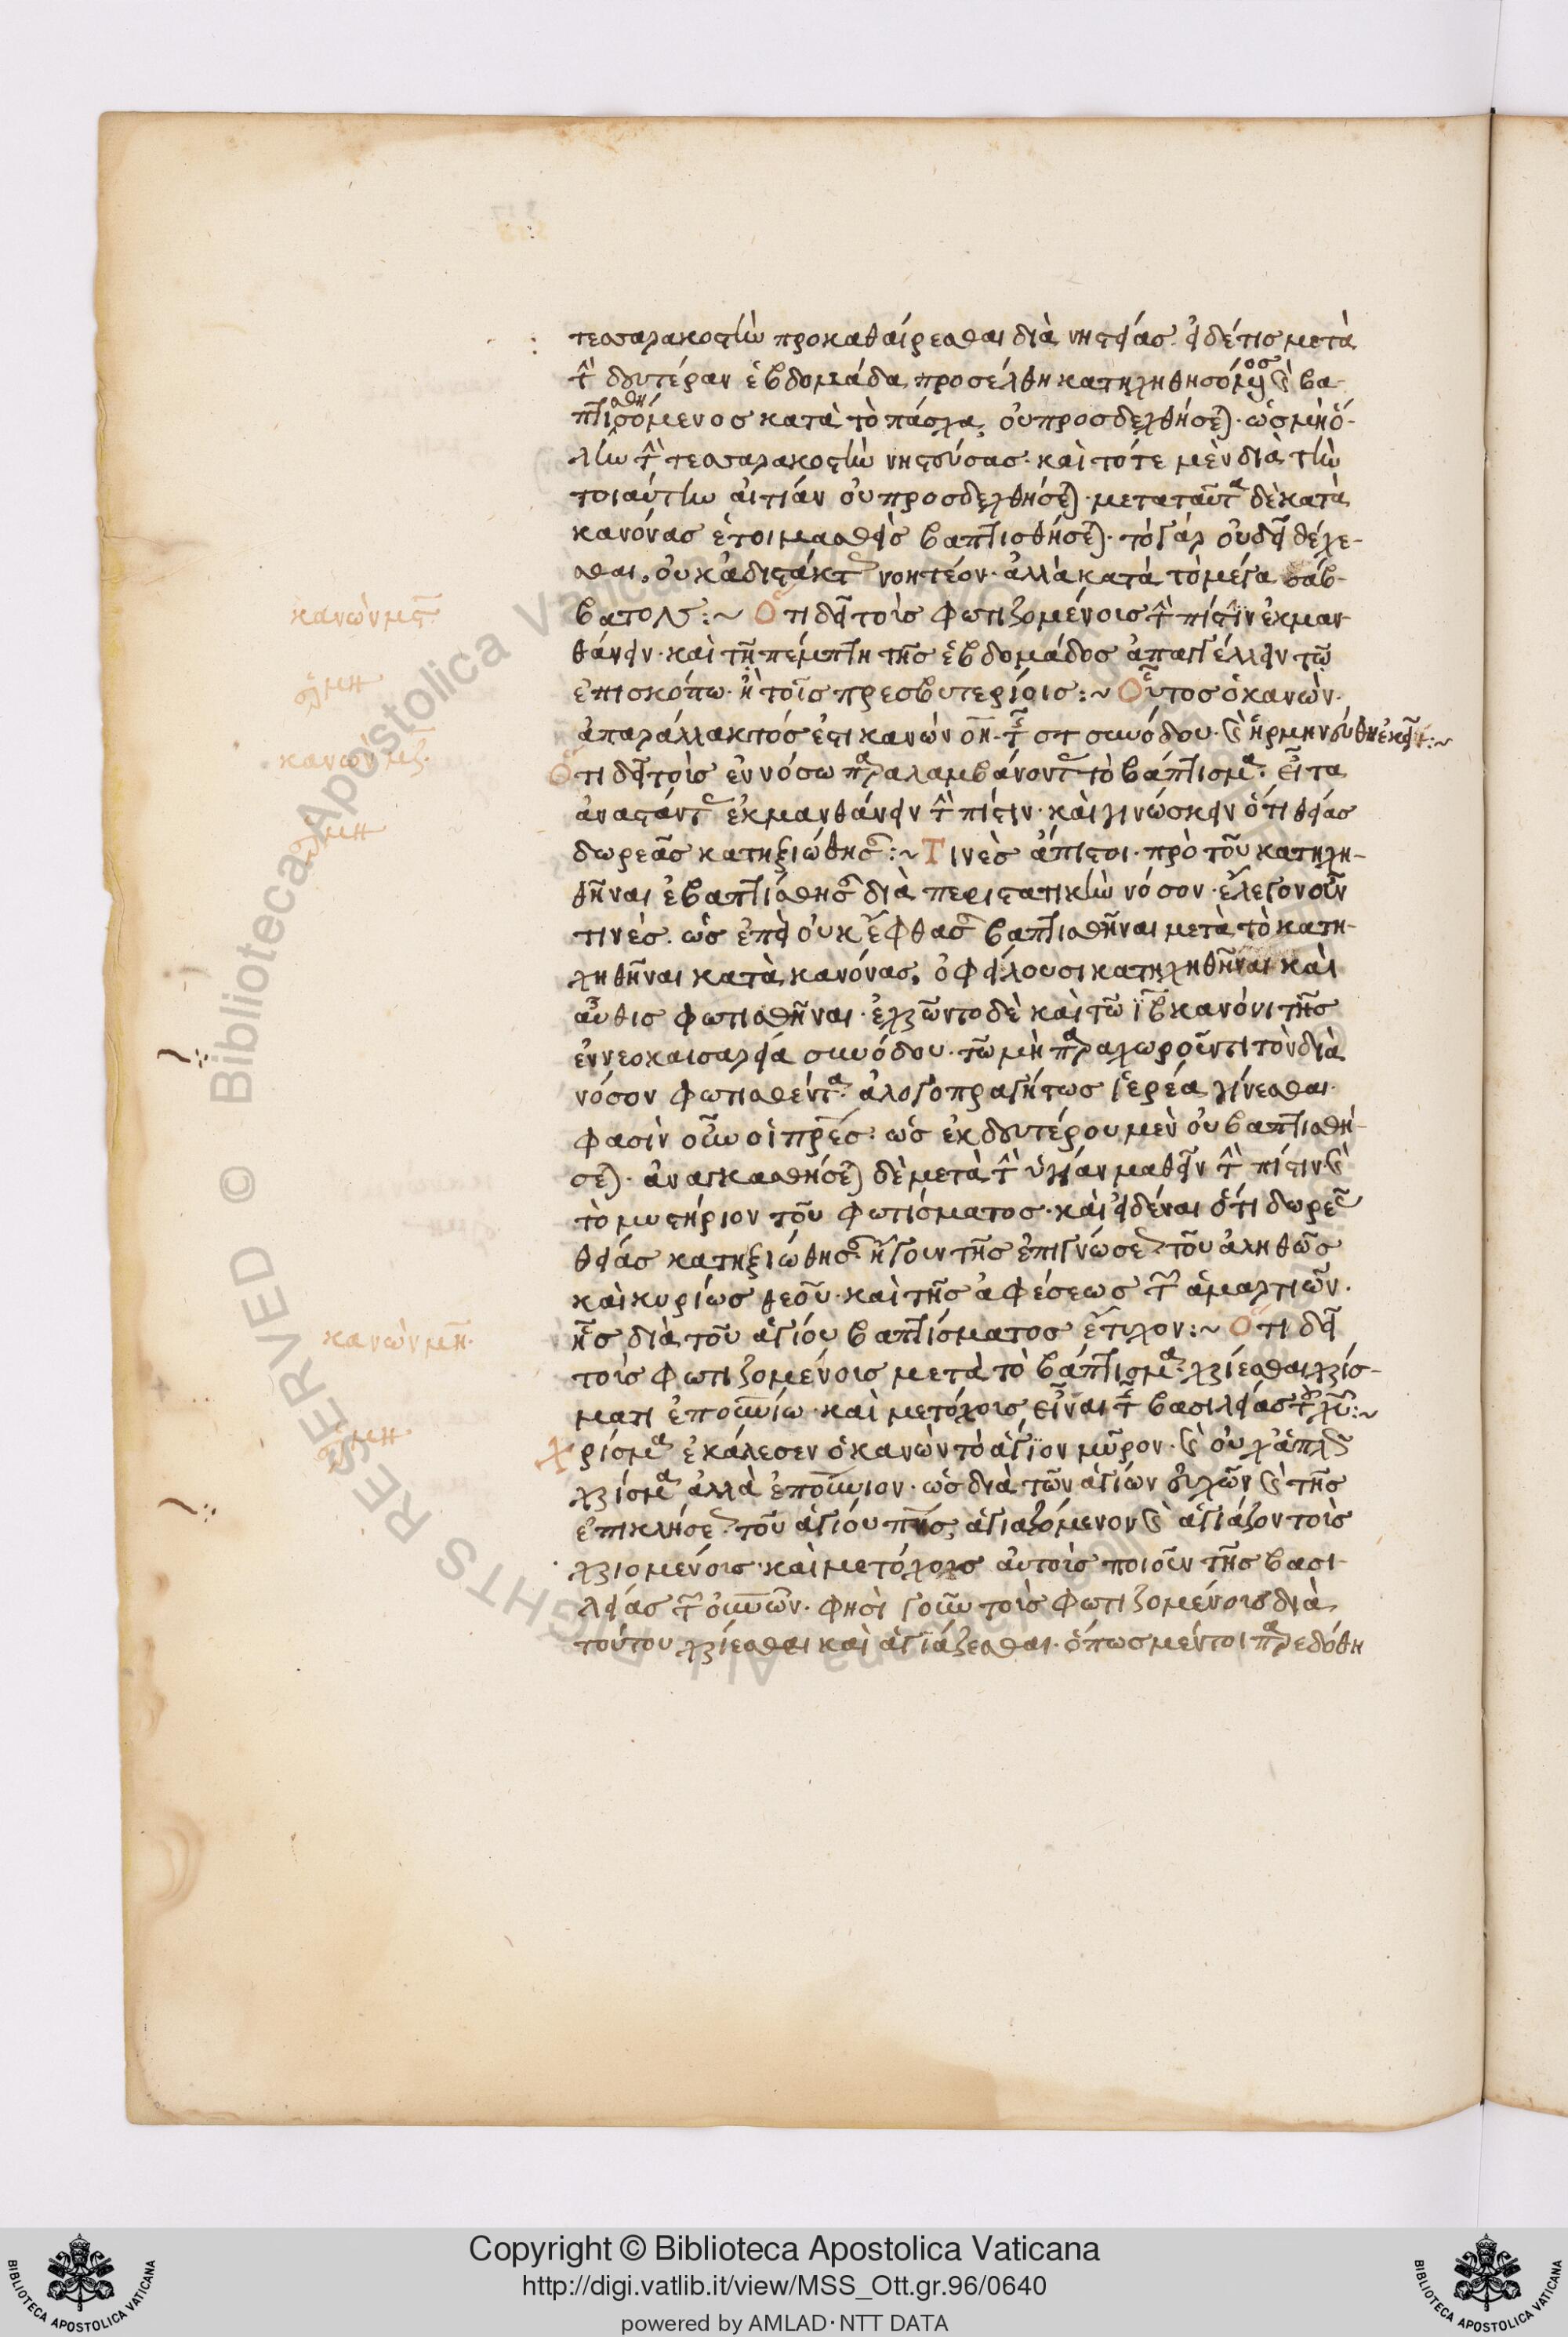 τεσσαρακοστὴν προκαθαίρεσθαι διὰ νηστείας· εἰ δέ τις μετὰ
τ̂ δευτέραν ἑβδομάδα προσέλθη κατηχηθησόμενος καὶ βα-
πτισθησόμενος κατὰ τὸ πάσχα, οὐ προσδεχθήσεται· ὡς μὴ ὅ-
λην τ̂ τεσσαρακοστὴν νηστεύσας· καὶ τότε μὲν διὰ τὴν
τοιαύτην αἰτίαν οὐ προσδεχθήσεται· μετα ταῦτα δὲ κατὰ
κανόνας ἑτοιμασθεὶς βαπτισθήσεται· τὸ γὰρ οὐ δεῖ δέχε-
σθαι, οὐκ ἀδιστάκτως νοητέον· ἀλλὰ κατὰ τὸ μέγα σάβ-
βατον:~ Ὅτι δεῖ τοὺς φωτιζομένους τ̂ πίστιν ἐκμαν-
κανὼν μς
θάνειν· καὶ τῆ πέμπτη τῆς ἑβδομάδος ἀπαγγέλλειν τῶ
ἐπισκόπω· ἢ τοῖς πρεσβυτερίοις:~ Οὗτος ὁ κανὼν·
ἑρμη
ἀπαράλλακτός ἐστι κανὼν οη· τ̂ ϛης συνόδου· καὶ ἡρμηνεύθη ἐκεῖ:~
κανὼν μζ·
Ὅτι δεῖ τοὺς ἐν νόσω παραλαμβάνοντας τὸ βάπτισμα· εἶτα
ἀναστάντας ἐκμανθάνειν τ̂ πίστιν· καὶ γινώσκειν ὅτι θείας
ἑρμη
δωρεᾶς κατηξιώθησαν:~ Τινὲς ἄπιστοι· πρὸ τοῦ κατηχη-
θῆναι ἐβαπτίσθησαν διὰ περιστατικὴν νόσον· ἔλεγον οὖν
τινὲς· ὡς ἐπεὶ οὐκ ἔφθασαν βαπτισθῆναι μετὰ τὸ κατη-
χηθῆναι κατὰ κανόνας, ὀφείλουσι κατηχηθῆναι καὶ
αὖθις φωτισθῆναι· ἐχρῶντο δὲ καὶ τῶ ιβ κανόνι τῆς
ἐν νεοκαισαρεία συνόδου· τῶ μὴ παραχωροῦντι τὸν διὰ
νόσον φωτισθέντα· ἀλογοπραγήτως ἱερέα γίνεσθαι·
φασὶν οὖν οἱ πρες· ὡς ἐκ δευτέρου μὲν οὐ βαπτισθή-
σεται· ἀναγκασθήσεται δὲ μετὰ τ̂ ὑγείαν μαθεῖν τ̂ πίστιν καὶ
τὸ μυστήριον τοῦ φωτίσματος· καὶ εἰδέναι ὅτι δωρεᾶς
θείας κατηξιώθησαν· ἤγουν τῆς ἐπιγνώσεως τοῦ ἀληθῶς
καὶ κυρίως θεοῦ· καὶ τῆς ἀφέσεως τῶν ἁμαρτιῶν·
κανὼν μη·
ἧς διὰ τοῦ ἁγίου βαπτίσματος ἔτυχον:~ Ὅτι δεῖ
τοὺς φωτιζομένους μετὰ τὸ βάπτισμα· χρίεσθαι χρίσ-
ματι ἐπουνίω· καὶ μετόχους εἶναι τ̂ βασιλείας τοῦ χυ:~
ἑρμη·
Χρίσμα ἐκάλεσεν ὁ κανὼν τὸ ἅγιον μῦρον· καὶ οὐχ ἁπλῶς
χρίσμα ἀλλὰ ἐπουνιον· ὡς διὰ τῶν ἁγίων εὐχῶν καὶ τῆς
ἐπικλήσεως τοῦ ἁγίου πνς, ἁγιαζόμενον καὶ ἁγιάζον τοὺς
χριομένους· καὶ μετόχους αὐτοὺς ποιοῦν τῆς βασι-
λείας τῶν οὐνῶν· φησὶ γοῦν τοὺς φωτιζομένους διὰ
τούτου χρίεσθαι καὶ ἁγιάζεσθαι· ὅπως μέντοι παρεδόθη
Copyright © Biblioteca Apostolica Vaticana
http://digi.vatlib.it/view/MSS_Ott.gr.96/0640
powered by AMLAD·NTT DATA
BIBLIOTECA APOSTOLICA VATICANA
BIBLIOTECA APOSTOLICA VATICANA